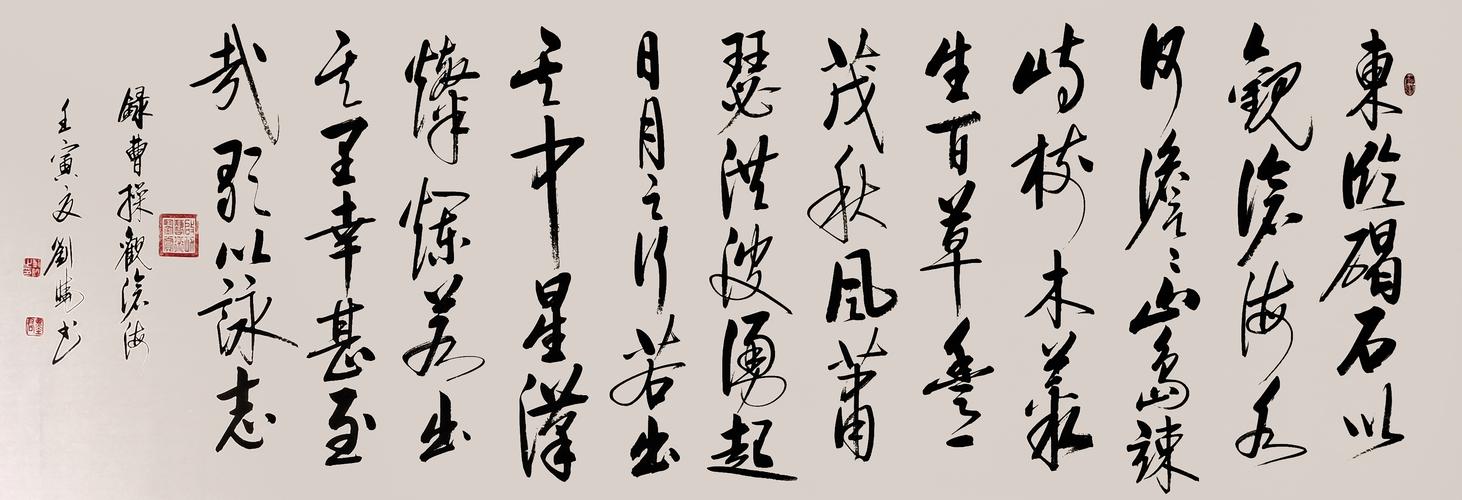 東臨碣石以
觀滄海水
何澹〻山島竦
峙樹木叢
生百草豐
茂秋風蕭
瑟洪波湧起
日月之行若出
其中星漢
燦爛若出
其里幸甚至
哉歌以詠志
錄曹操觀滄海
壬寅夏劉書